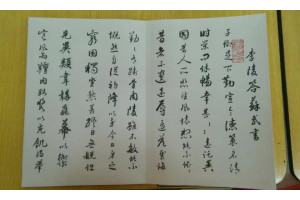 李陵答蘇武書
子卿足下勤宣令德策名清
時榮問休暢幸甚〻〻遠託異
國昔人所悲望風懷想能不依〻
昔者不遺遠辱還答慰誨
勤〻有踰骨肉陵雖不敏能不
慨然自從初降以至今日身之
窮困獨坐愁苦終日無覩但
見異類韋韝毳幕以禦
風雨羶肉酪漿以充飢渴舉